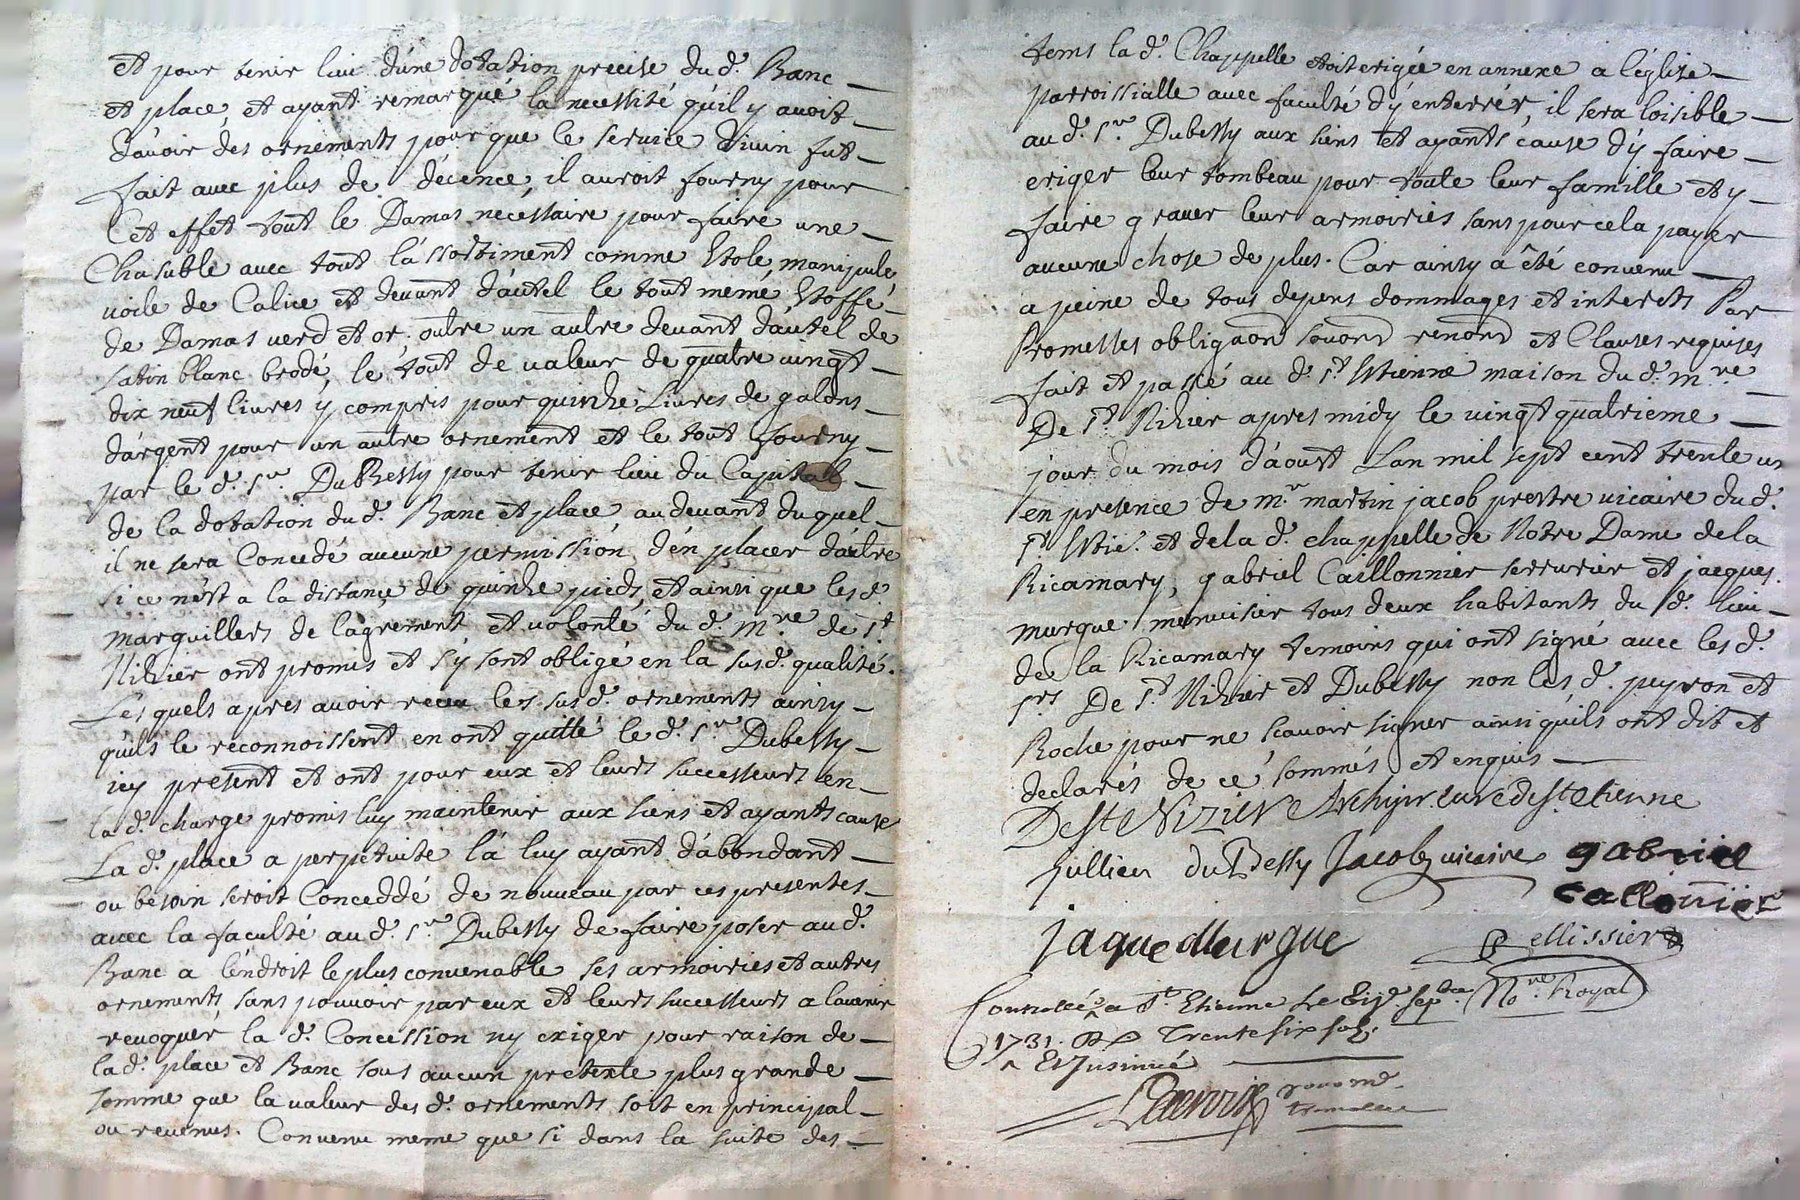 et pour tenir lieu d'úne dotation precise du d. Banc
et place, et ayant remarqué la necessité qu'il y avoit
d'avoir des ornements pour que le service divin fut
fait avec plus de décence, il auroit fourny pour
Cet effet tout le Damas necessaire pour faire une
Chasuble avec tout l'assortiment comme Etole, manipule
voile de Calice et devant d'autel le tout meme Etoffe
de Damas verd et or, outre un autre devant d'autel de
satin blanc brodé, le tout de valeur de quatre vingt
dix neuf livres y compris pour quinze Livres de galons
d'argent pour un autre ornement et le tout fourny
par le d. Sr. DuBessy pour tenir lieu du Capital
de la dotation du d. Banc et place au devant du quel
il ne sera Concedé aucune permission d'en placer d'autre
si ce n'est a la distance de quinze pieds, et ainsi que les d.
marguillers de l'agrement et volonté du d. mre de St
Nizier ont promis et s'y sont obligé en la susd. qualité.
Lesquels apres avoir receu les susd. ornements ainsy
qu'ils le reconnoissent en ont quitté le d. Sr Dubessy
icy present et ont pour eux et leurs successeurs en
la d. charge promis luy maintenir aux siens et ayants cause
La d. place a perpetuité la luy ayant d'abondant
ou besoin seroit Conceddé de nouveau par ces presentes
avec la faculté au d. Sr Dubessy de faire poser au d.
Banc a l'endroit le plus convenable ses armoiries et autres
ornements sans pouvoir par eux et leurs successeurs a l'avenir
revoquer la d. Concession ny exiger pour raison de
la d. place et Banc sous aucun pretexte plus grande
somme que la valeur des d. ornements soit en principal
ou revenus. Convenu meme que si dans la suite des
tems la d. Chappelle etoit erigée en annexe a l'église
parroissialle avec faculté d'y enterrér, il sera loisible
au d. Sr Dubessy aux siens et ayants cause d'y faire
eriger leur tombeau pour toute leur famille et y
faire graver leur armoiries sans pour cela payer
aucune chose de plus. Car ainsy a été convenu
a peine de tous depens dommages et interets Par
Promesses obligaon renond et Clauses requises
fait et passé au d. St Etienne maison du d. mre
De St Nizier apres midy le vingt quatrieme
jour du mois d'aoust Lan mil sept cent trente un
en presence de mr martin jacob prestre vicaire du d.
St Etie. et de la d. chappelle de Notre Dame de la
Ricamary, gabriel Caillonnier serrurier et jacques
murgue menuisier tous deux habitants du d. lieu
de la Ricamary temoins qui ont signé avec les d.
srs De St Nizier et Dubessy non les d. peyron et
Roche pour ne scavoir signer ainsi qu'ils ont dit et
declarés de ce sommés et enquis
De St Nizier Archiprt curé de st etienne
Jullien duBessy Jacob vicaire gabriel
callonnier
jaque Murgue Pellissier
Nore Royal
Controllé a St. Etienne Le Sepbre
1731. R Trente six sols.
Et Insinué